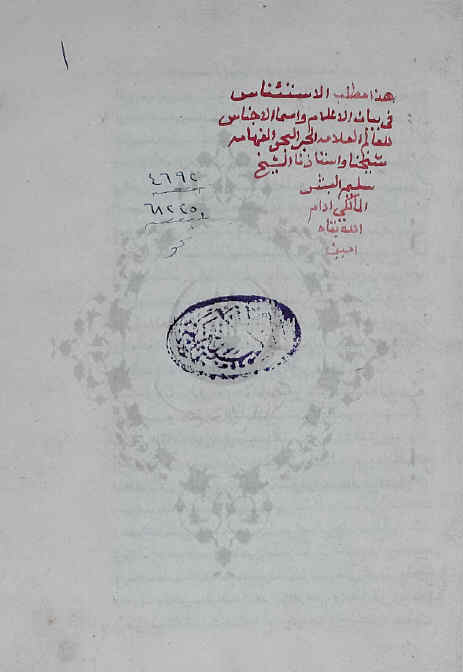 ١
هذا مطلب الاستئناس
في بيان الاعلام واسما الاجناس
للعالم العلامه الحبر البحر الفهامه
شيخنا واستاذنا الشيخ
سليم البشرى
المالكي ادام
الله بقاه
امين
٤٦٩٢
٦٨٢٢٥
نحو